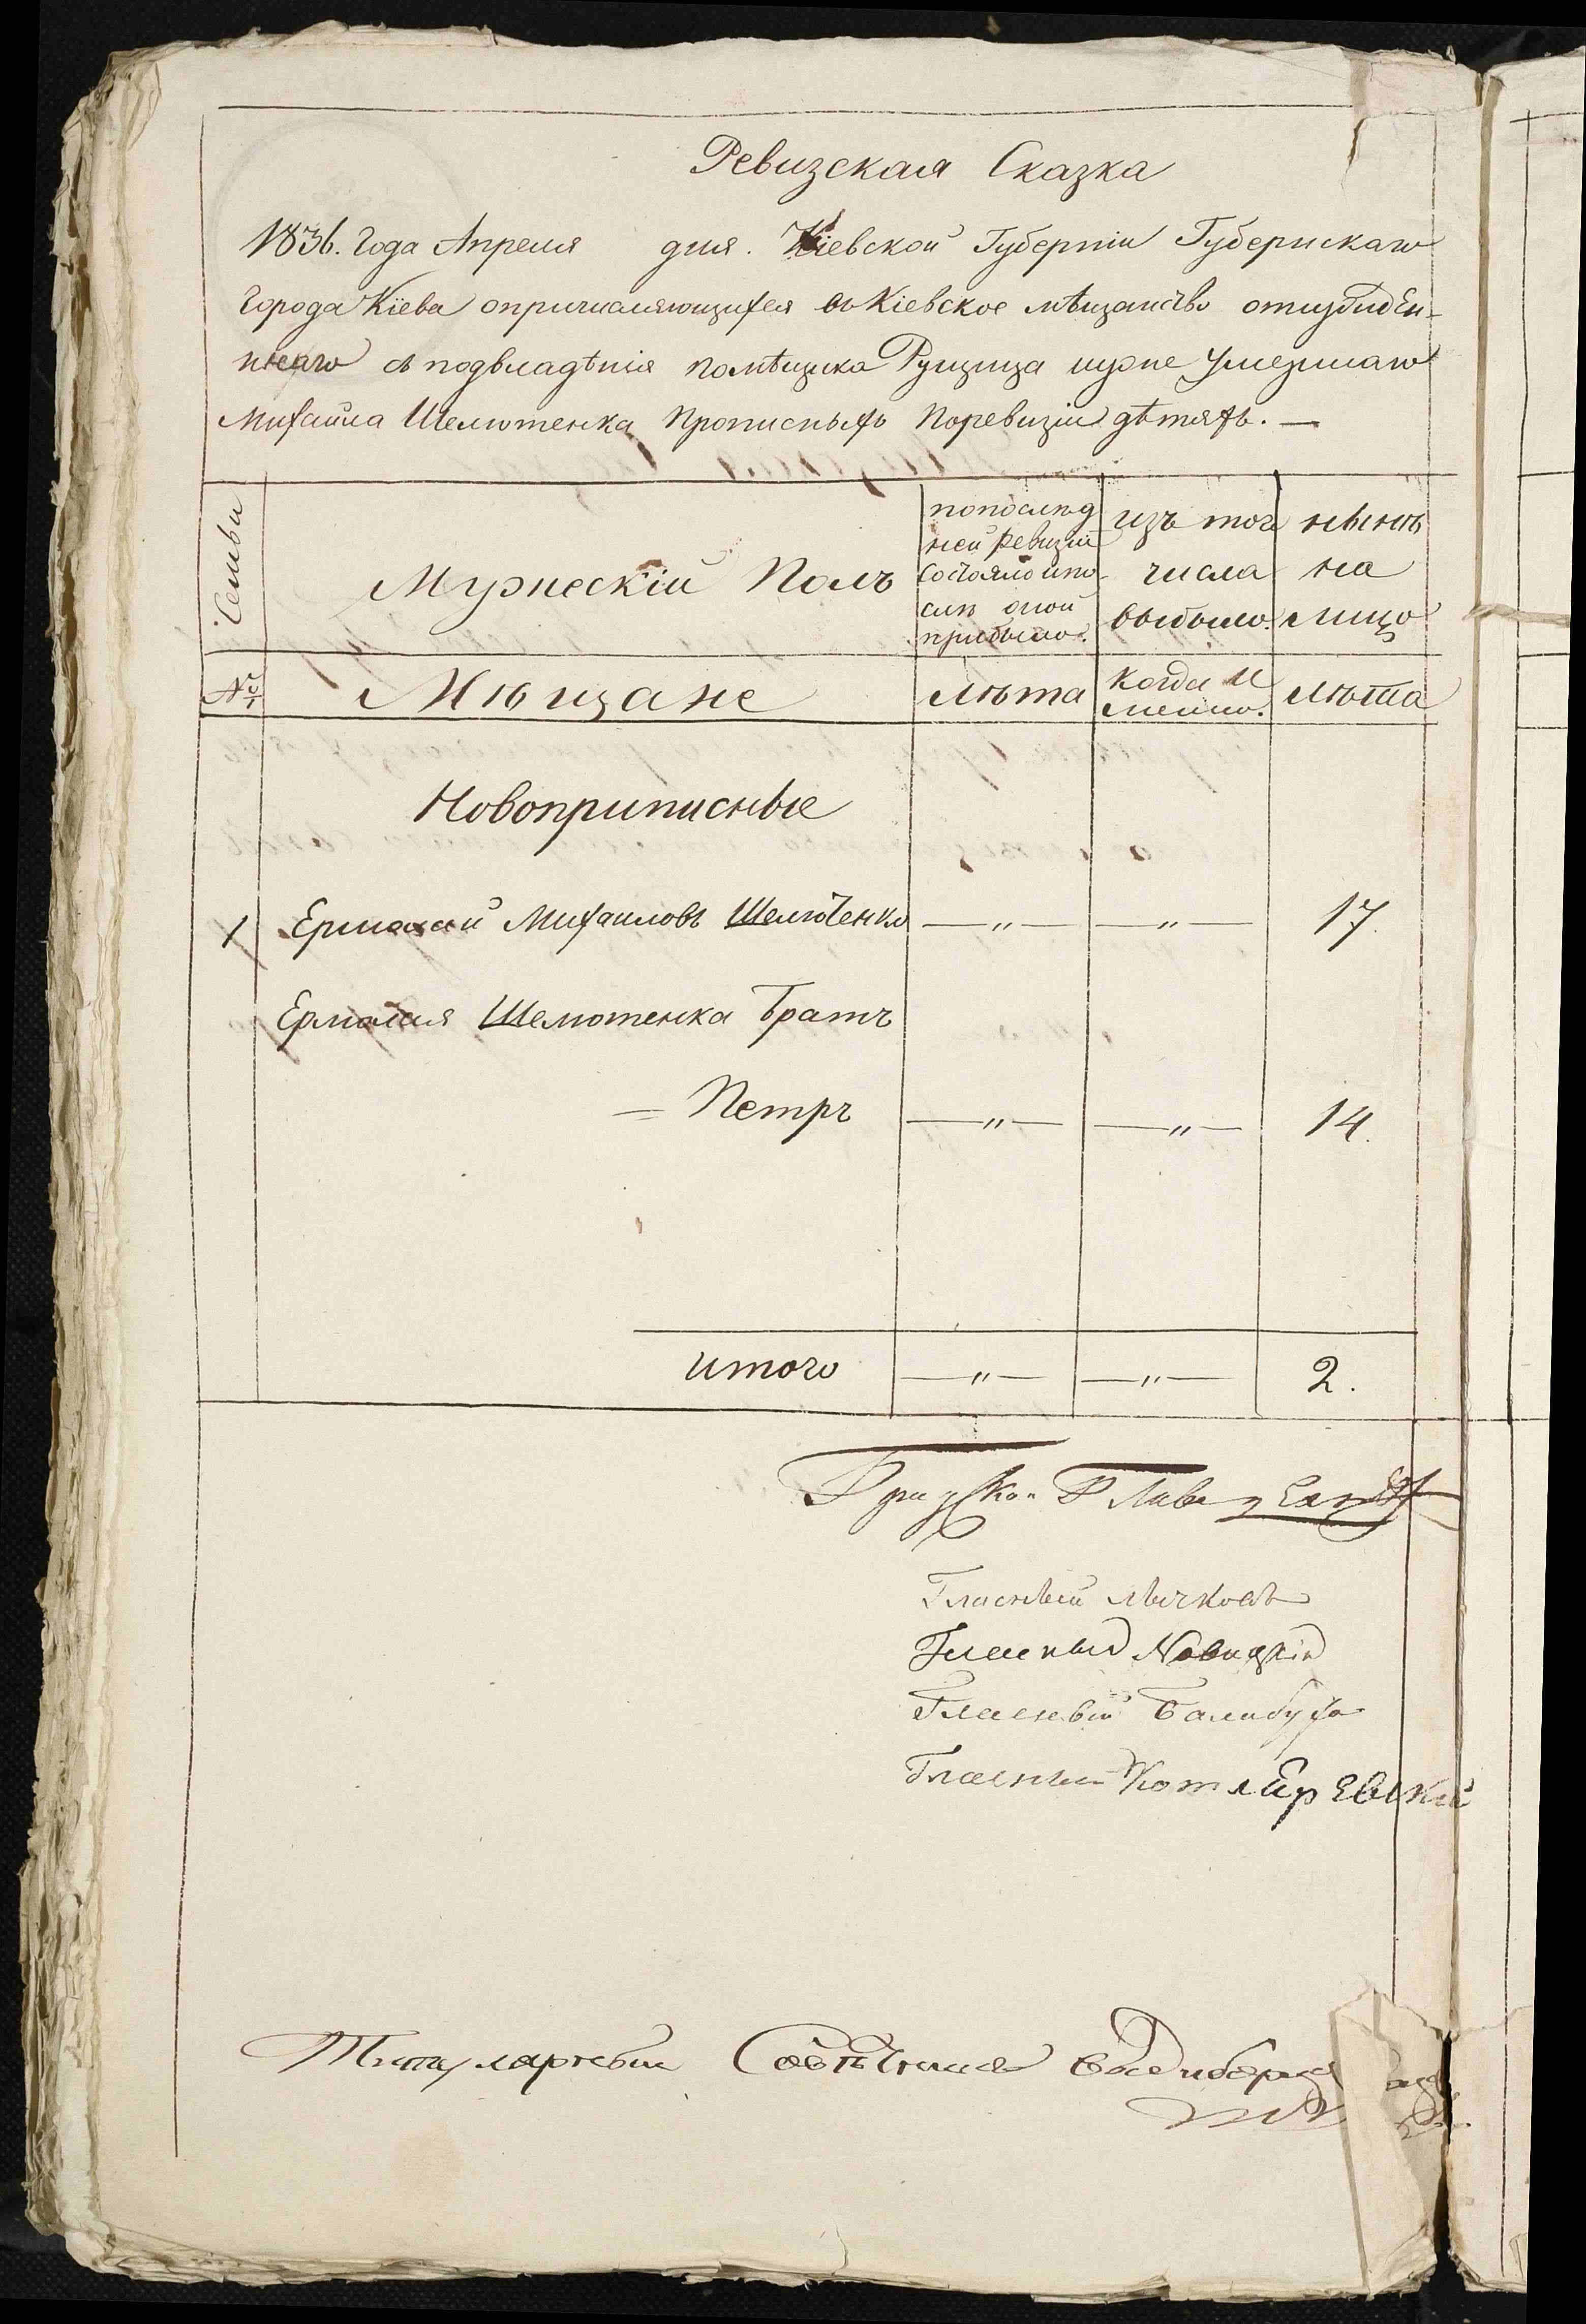 Ревизская Сказка
1836. Года Апреля дня. Кіевской Губерніи Губернскаго
Города Кіева опричисляющихся въ Кіевское мѣщанство
съ подвладѣнія помѣщика Рущица уже Умершаго
Михайла Шелютенка Прописныхъ Поревизіи дѣтяхъ. —
Семьи
Мужескій Полъ
попослѣд
ней ревизіи
состояло ипо
слѣ оной
прибыло.
изъ того
числа
выбыло.
нынѣ
на
лицо
№
Мѣщане
лѣта
когда И
менно.
лѣта
Новоприписные
1 Ермолай Михаиловъ Шелютенко —„— —„— 17.
Ермолая Шелютенка Братъ
— Петръ —„— —„— 14.
итого —„— —„— 2.
Гласный Лычковъ
Гласный Новицкій
Гласный Балабуха
Гласный Котляревский
Титулярный Совѣтникъ